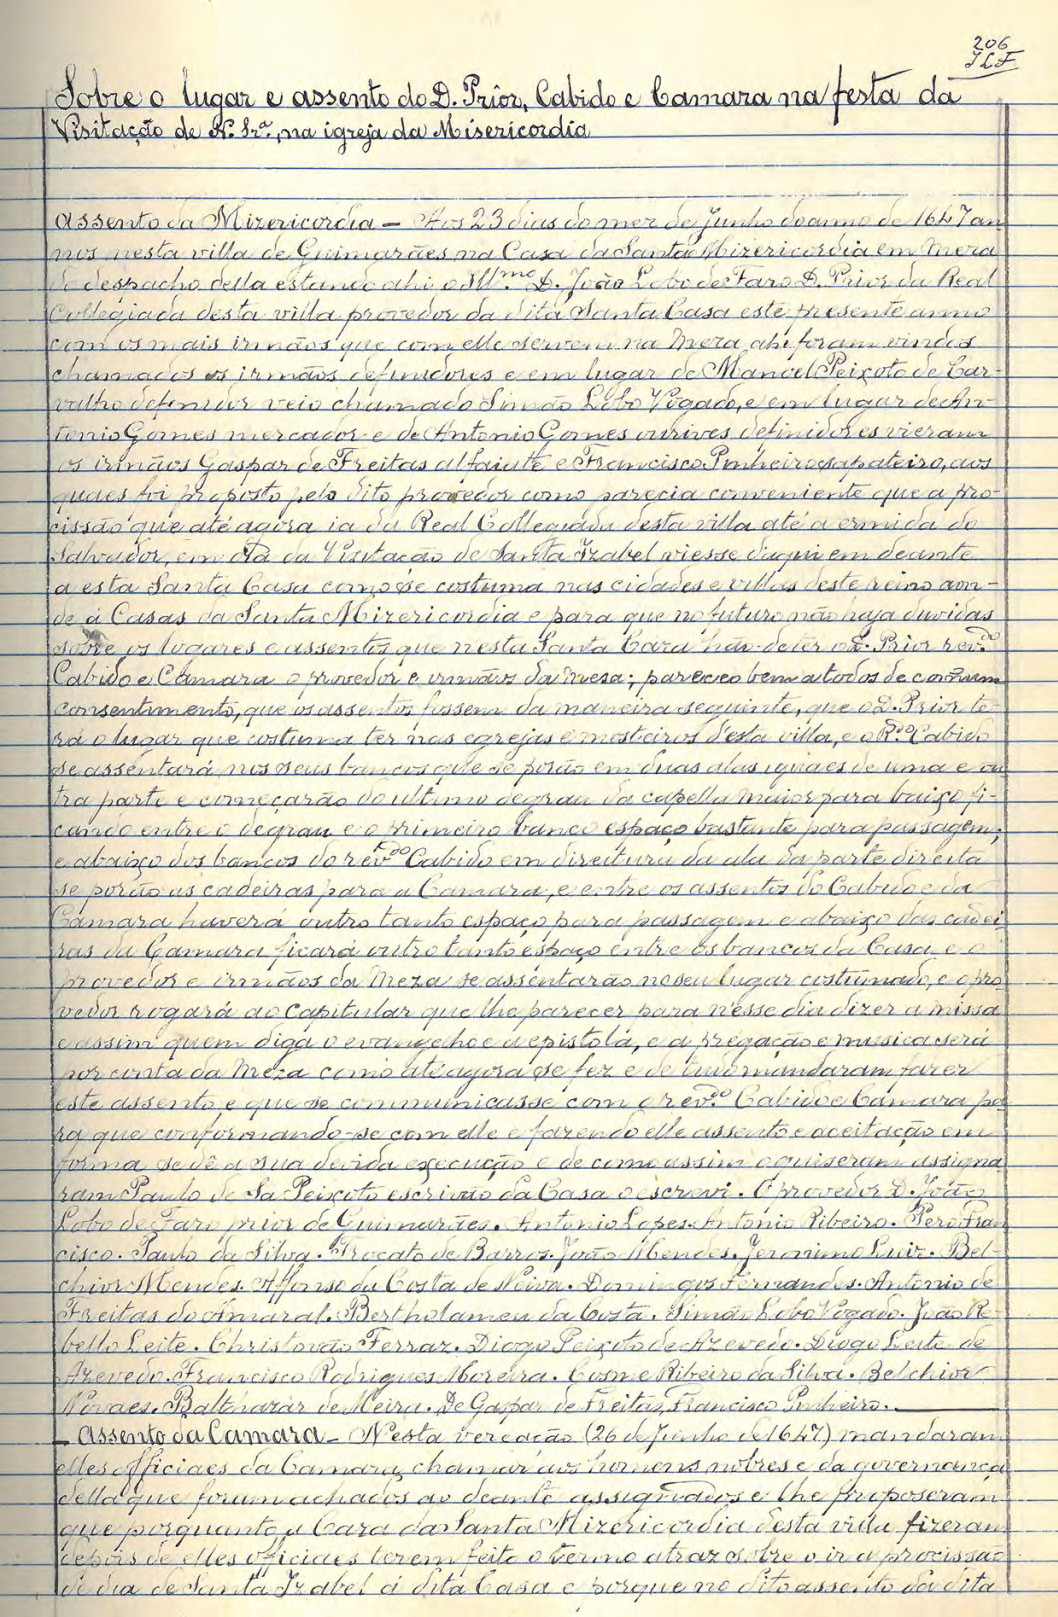 206
JLF
Sobre o lugar e assento do D. Prior, Cabido e Camara na festa da
Visitação de N. Srª, na igreja da Misericordia
Assento da Mizericordia - Aos 23 dias do mez de Junho do anno de 1647 an-
nos nesta villa de Guimarães na Casa da Santa Mizericordia em Meza
do despacho della estando ahi o Illmo D. João Lobo de Faro D. Prior da Real
Collegiada desta villa provedor da dita Santa Casa este presente anno
com os mais irmãos que com elle servem na Meza ahi foram vindos
chamados os irmãos definidores e em lugar de Manoel Peixoto de Car-
valho definidor veio chamado Simão Lobo Vogado, e em lugar de An-
tonio Gomes mercador e de Antonio Gomes ourives definidores vieram
os irmãos Gaspar de Freitas alfaiate e Francisco Pinheiro sapateiro, aos
quaes foi proposto pelo dito provedor como parecia conveniente que a pro-
cissão que até agora ia da Real Collegiada desta villa até a ermida do
Salvador, em dia da Visitação de Santa Izabel viesse daqui em deante
a esta Santa Casa como se costuma nas cidades e villas deste reino aon-
de á Casas da Santa Mizericordia e para que no futuro não haja duvidas
sobre os logares e assentos que nesta Santa Caza hão-de ter o D. Prior revdo
Cabido e Camara o provedor e irmãos da Mesa; pareceo bem a todos de comum
consentimento, que os assentos fossem da maneira seguinte, que o D. Prior te-
rá o lugar que costuma ter nas egrejas e mosteiros d'esta villa, e o Rdo Cabido
se assentará nos seus bancos que se porão em duas alas iguaes de uma e ou-
tra parte e começarão do ultimo degrau da capella maior para baixo fi-
cando entre o degrau e o primeiro banco espaço bastante para passagem;
e abaixo dos bancos do revdo Cabido em direitura da ala da parte direita
se porão as cadeiras para a Camara, e entre os assentos do Cabido e da
Camara haverá outro tanto espaço para passagem e abaixo das cadei-
ras da Camara ficará outro tanto espaço entre os bancos da Casa e o
provedor e irmãos da Meza se assentarão no seu lugar costumado, e o pro-
vedor rogará ao capitular que lhe parecer para n'esse dia dizer a missa
e assim quem diga o evangelho e a epistola, e a pregação e musica será
por conta da Meza como até agora se fez e de tudo mandaram fazer
este assento, e que se communicasse com o revdo Cabido e Camara pa-
ra que conformando-se com elle e fazendo elle assento e aceitação em
forma se dê a sua devida execução e de como assim o quiseram assigna-
ram Paulo de Sa Peixoto escrivão da Casa o escrevi. O provedor D. João
Lobo de Faro prior de Guimarães. Antonio Lopes. Antonio Ribeiro. Pero Fran-
cisco. Paulo da Silva. Trocato de Barros. João Mendes. Jeronimo Luiz. Bel-
chior Mendes. Affonso da Costa de Neiva. Domingos Fernandes. Antonio de
Freitas do Amaral. Bertholameu da Costa. Simão Lobo Vogado. João Re-
bello Leite. Christovão Ferraz. Diogo Peixoto de Azevedo. Diogo Leite de
Azevedo. Francisco Rodrigues Moreira. Cosme Ribeiro da Silva. Belchior
Novaes. Balthazar de Meira. De Gaspar de Freitas, Francisco Pinheiro.
- Assento da Camara - N'esta vereação (26 de Junho de 1647) mandaram
elles officiaes da Camara, chamar aos homens nobres e da governança
della que foram achados ao deante assignados e lhe proposeram
que porquanto, a Caza da Santa Mizericordia desta villa fizeram
depois de elles officiaes terem feito o termo atraz sobre o ir a procissão
di dia de Santa Izabel á dita Casa e porque no dito assento da dita